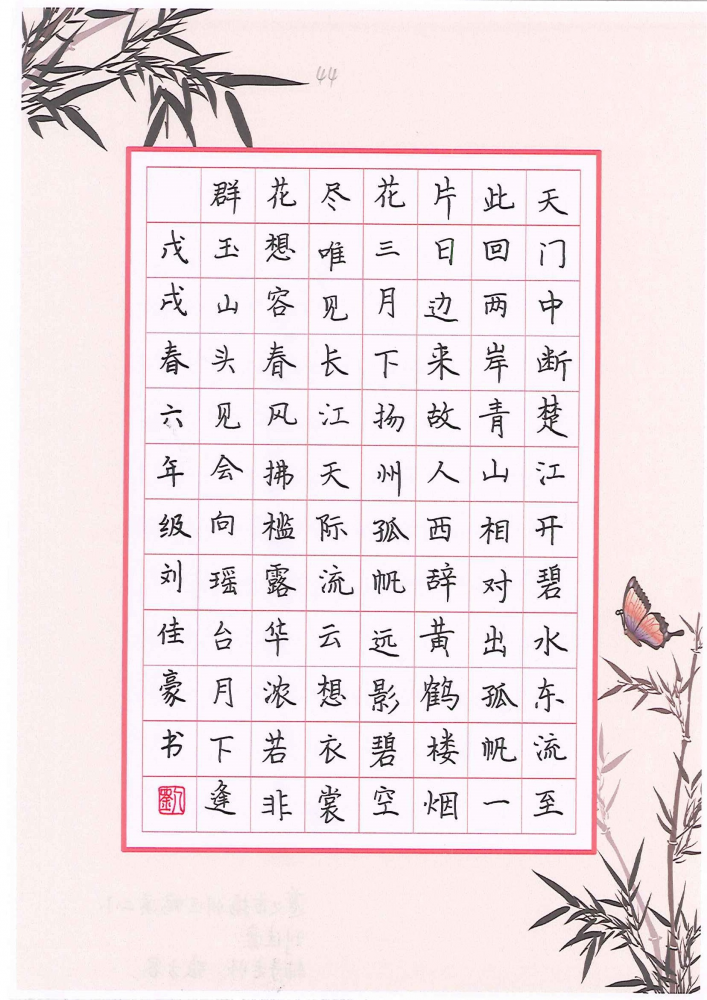 44
天门中断楚江开碧水东流至
此回两岸青山相对出孤帆一
片日边来故人西辞黄鹤楼烟
花三月下扬州孤帆远影碧空
尽唯见长江天际流云想衣裳
花想容春风拂槛露华浓若非
群玉山头见会向瑶台月下逢
戊戌春六年级刘佳豪书